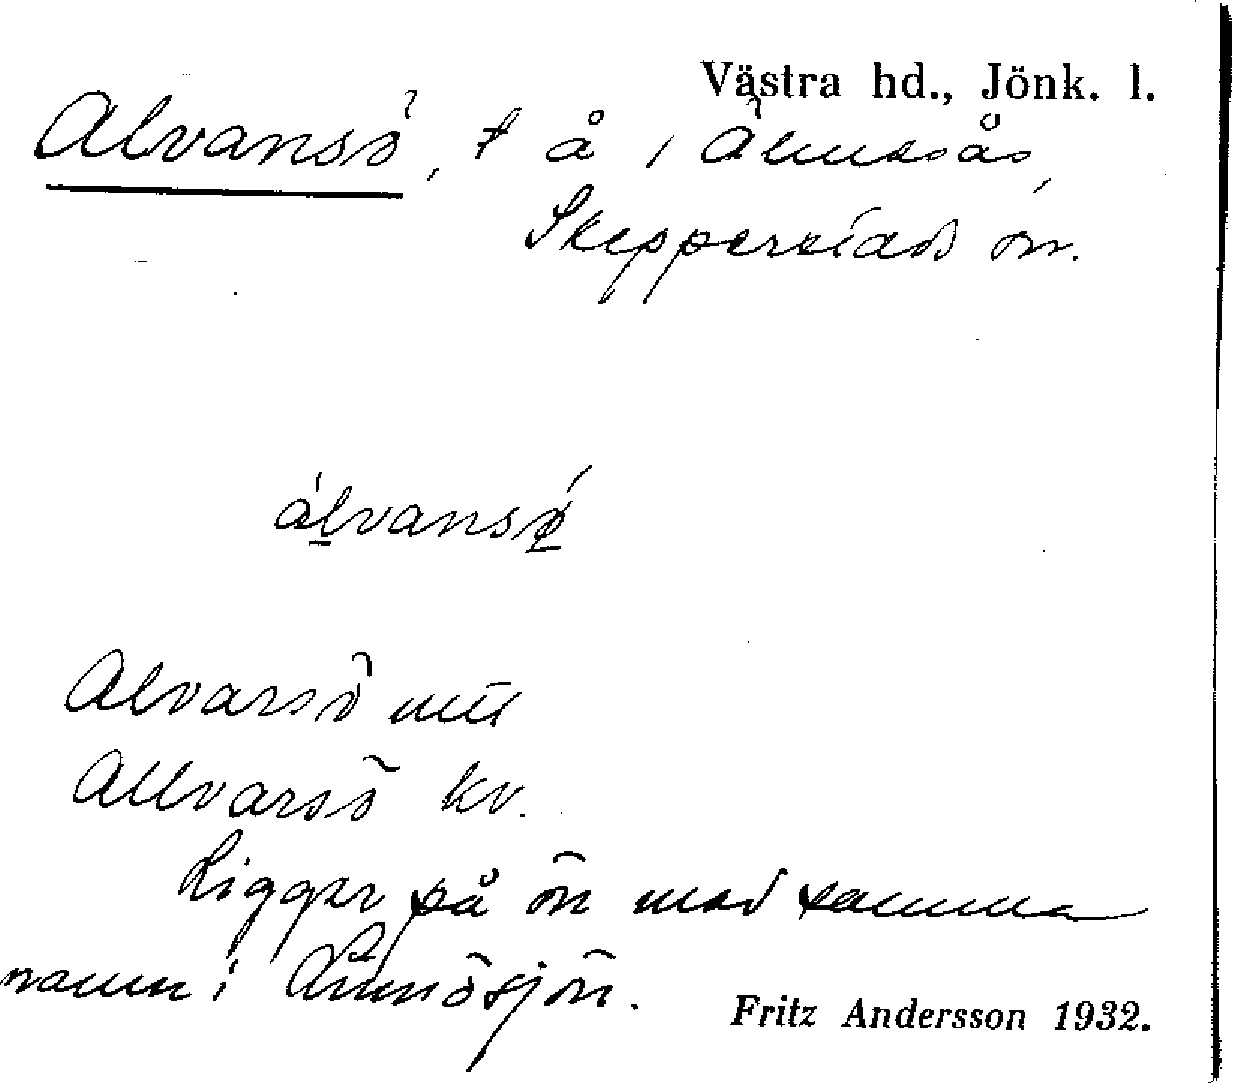 Västra hd., Jönk. l.
Alvansö, t å, Älmesås,
Skepperstads sn.
álvansö́
Alvarsö mtl
Allvarsö kv.
Ligger på ön med samma
namn i Linnösjön.
Fritz Andersson 1932.